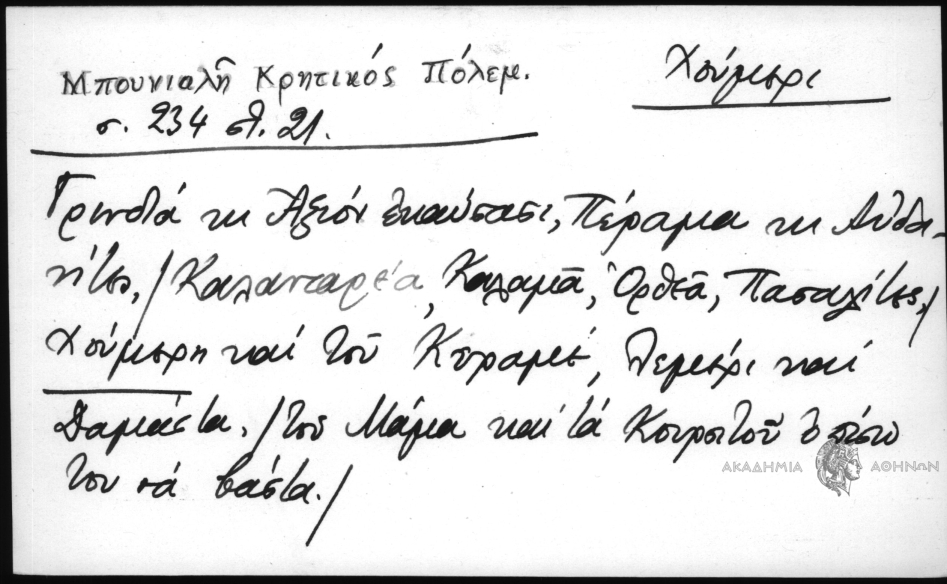 Μπουνιαλῆ Κρητικός Πόλεμ.
σ. 234 στ. 21.
Χούμερι
Γρινιά κι Ἀξιόν ἐκαύσασι, Πέραμα κι Αὐδα-
νίτες, / Καλανταρέα, Καλαμᾶ, Ὀρθεᾶ, Πασαλίτες, /
Χούμερη καί τοῦ Κεραμέ, καί
Δαμάστα. / τοῦ Μάμα καί τά ὀπίσω
του νά βάστα. /
ΑΚΑΔΗΜΙΑ ΑΘΗΝΩΝ